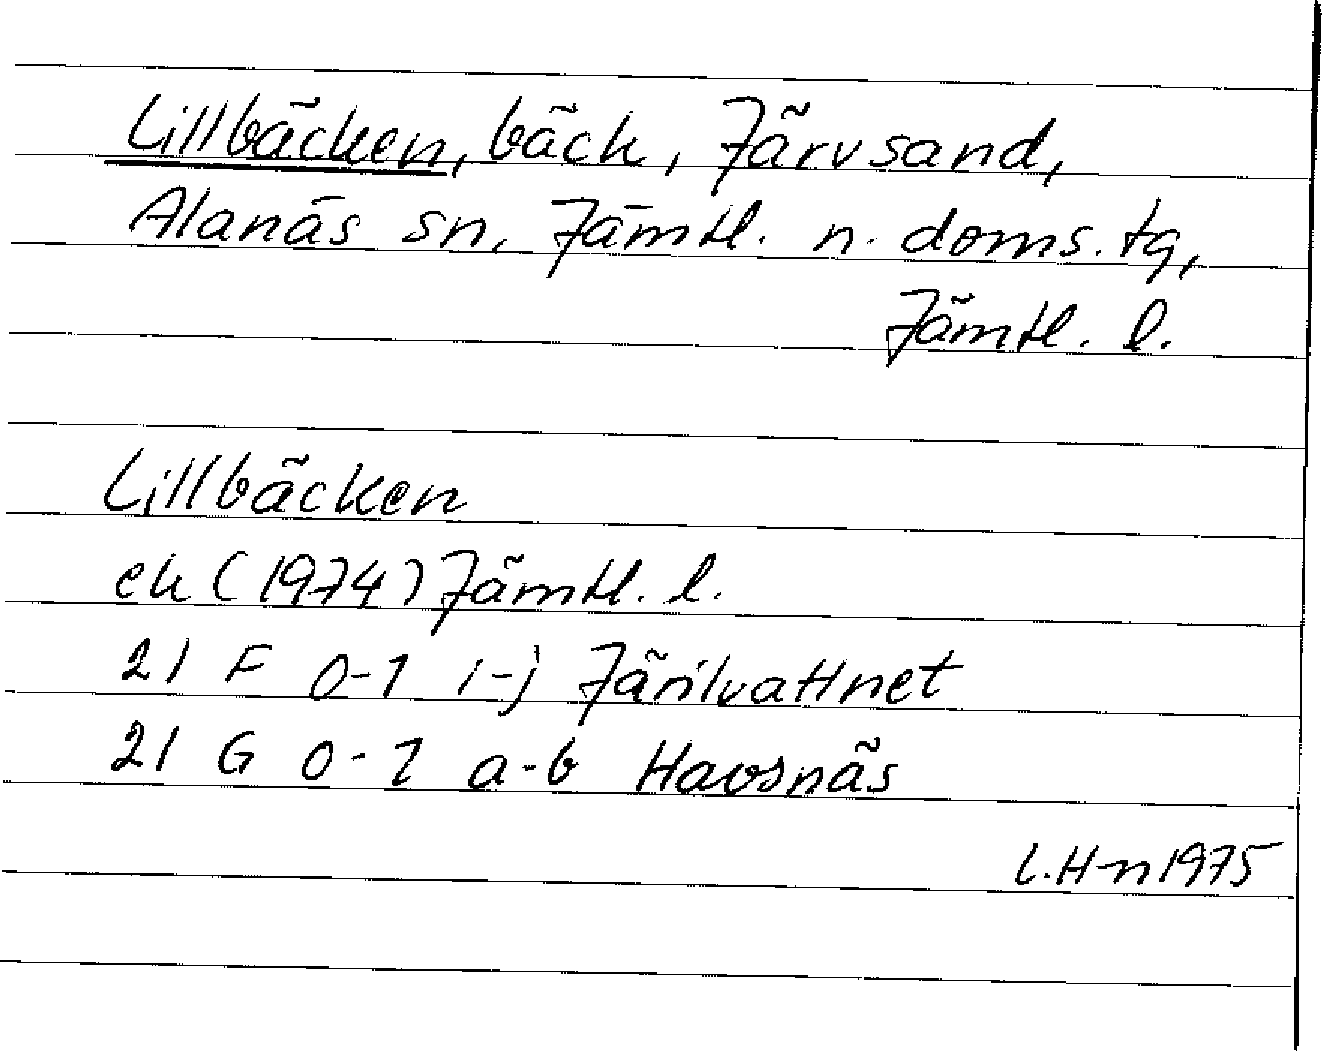 Lillbäcken, bäck, Järvsand,
Alanäs sn, Jämtl. n. doms. tg,
Jämtl. l.
Lillbäcken
ek (1974) Jämtl. l.
21 F 0-1 i-j
21 G 0-1 a-b Havsnäs
L.H-n 1975